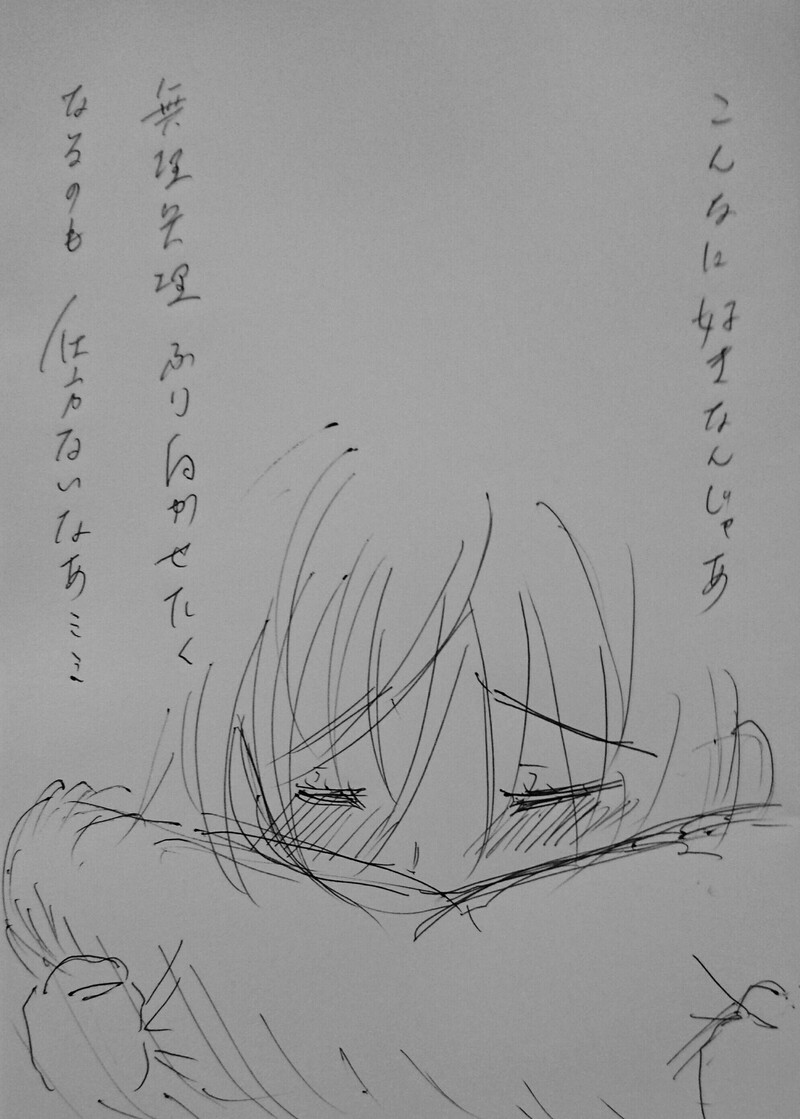 こんなに好きなんじゃあ
無理矢理ふり向かせたく
なるのも 仕方ないなあ……